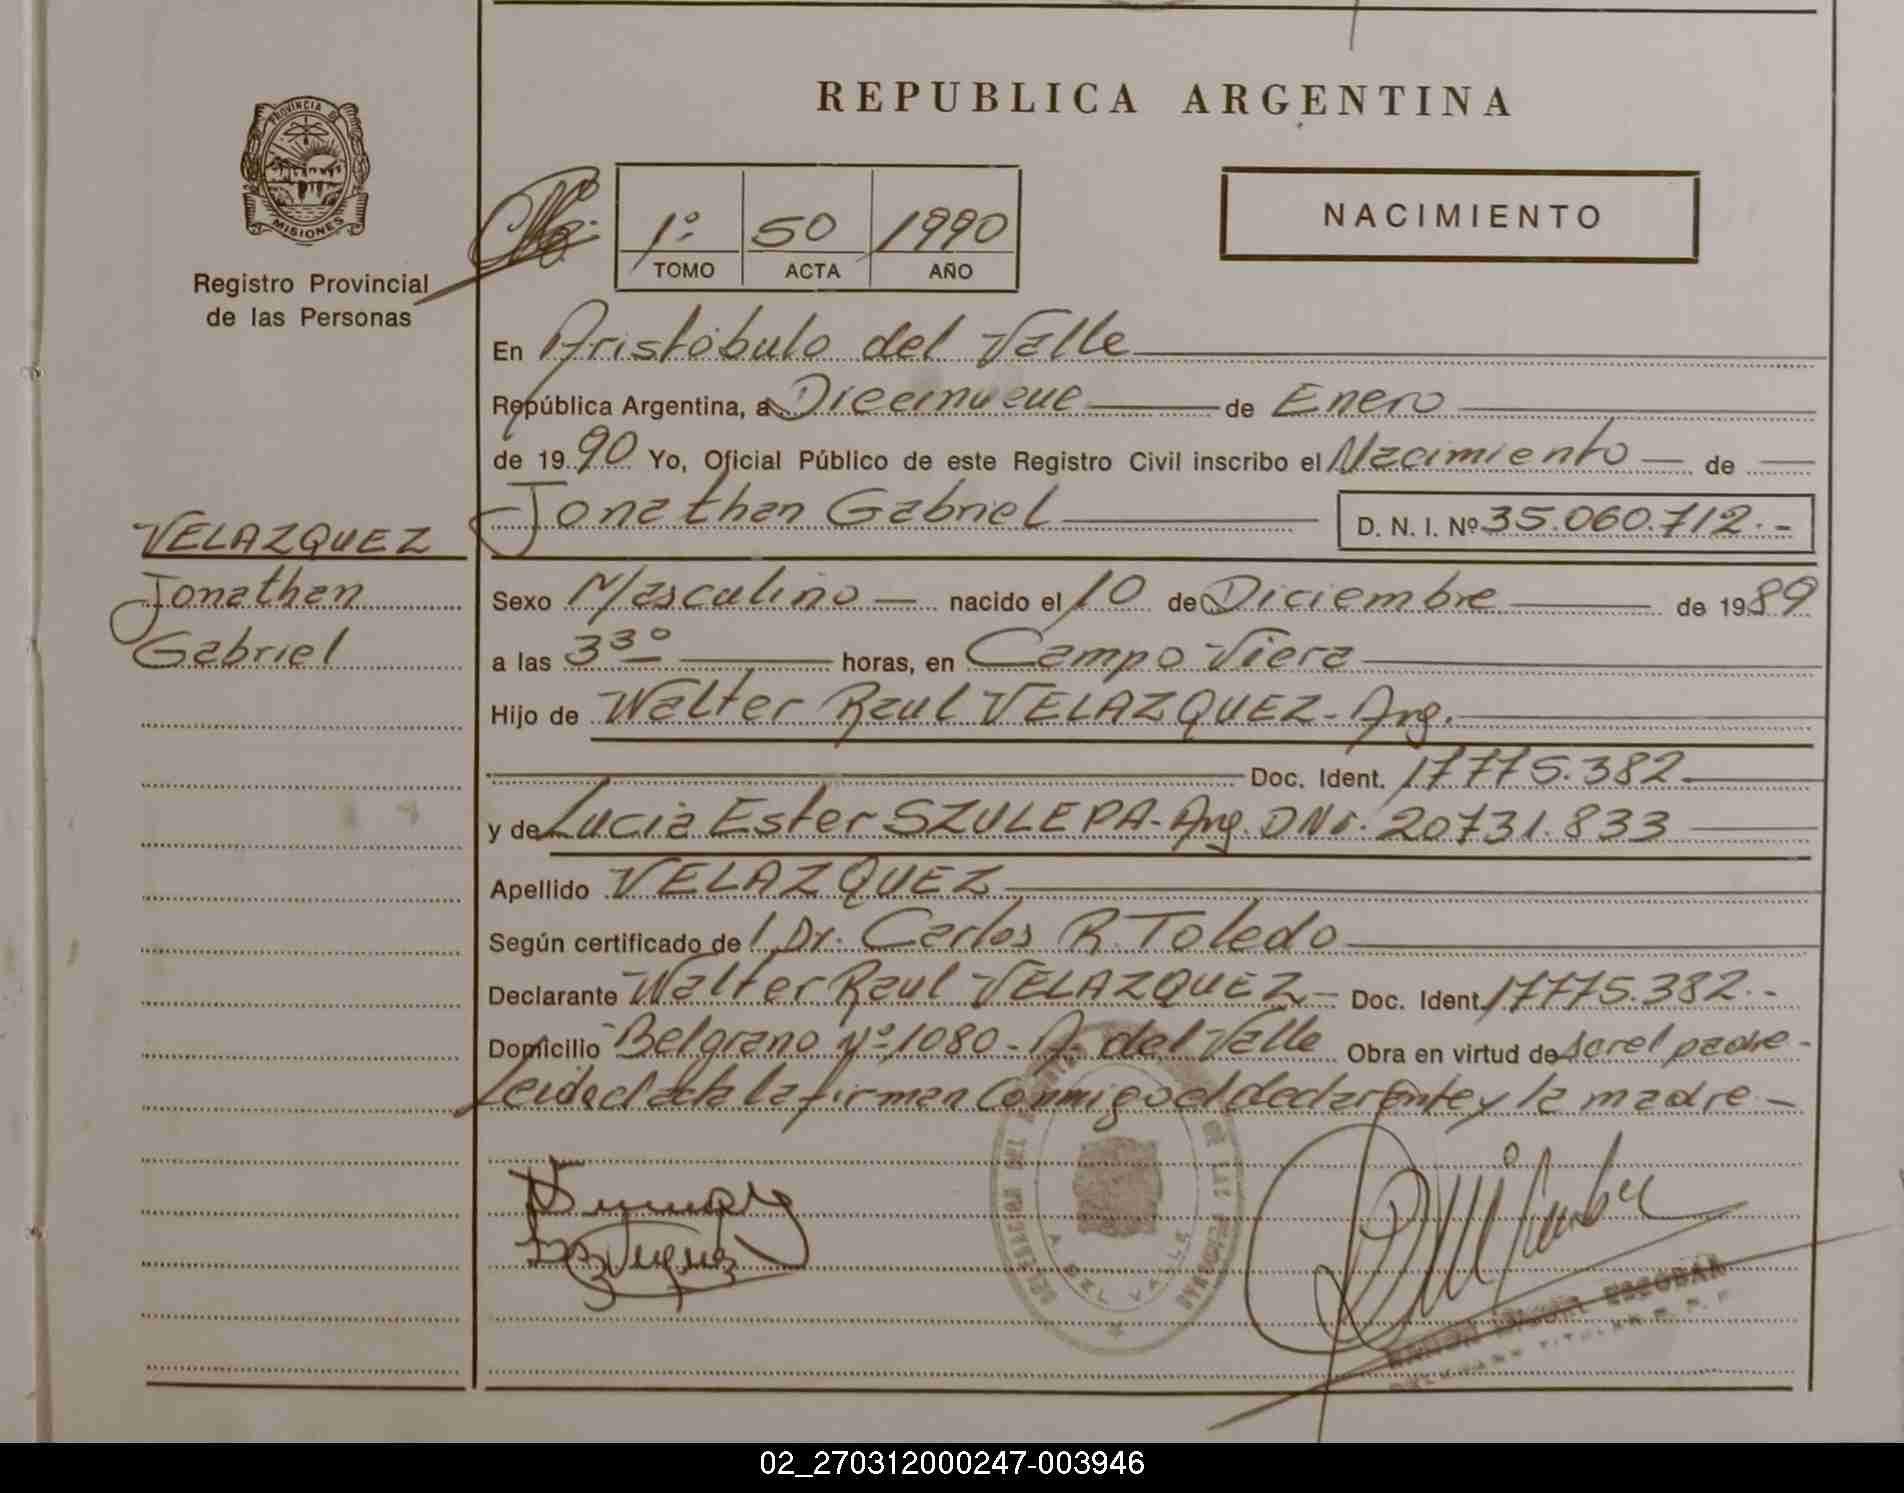 REPUBLICA ARGENTINA
PROVINCIA DE
MISIONES
Registro Provincial
de las Personas
1º 50 1990
TOMO ACTA AÑO
NACIMIENTO
En Aristóbulo del Valle
República Argentina, a Diecinueve de Enero
de 1990 Yo, Oficial Público de este Registro Civil inscribo el Nacimiento de
Jonathan Gabriel D. N. I. Nº 35.060.712.-
VELAZQUEZ
Jonathan
Gabriel
Sexo Masculino nacido el 10 de Diciembre de 1989
a las 3 3º horas, en Campo Viera
Hijo de Walter Raul VELAZQUEZ - Arg.
Doc. Ident. 17775.382
y de Lucia Ester SZULEPA - Arg. DNI. 20731.833
Apellido VELAZQUEZ
Según certificado de l Dr. Carlos R. Toledo
Declarante Walter Raul VELAZQUEZ - Doc. Ident. 17775.382.-
Domicilio Belgrano Nº 1080 - A. del Valle Obra en virtud de ser el padre -
Leida el acta la firman conmigo el declarante y la madre -
A. DEL VALLE
RAMON ESCOBAR
02_270312000247-003946